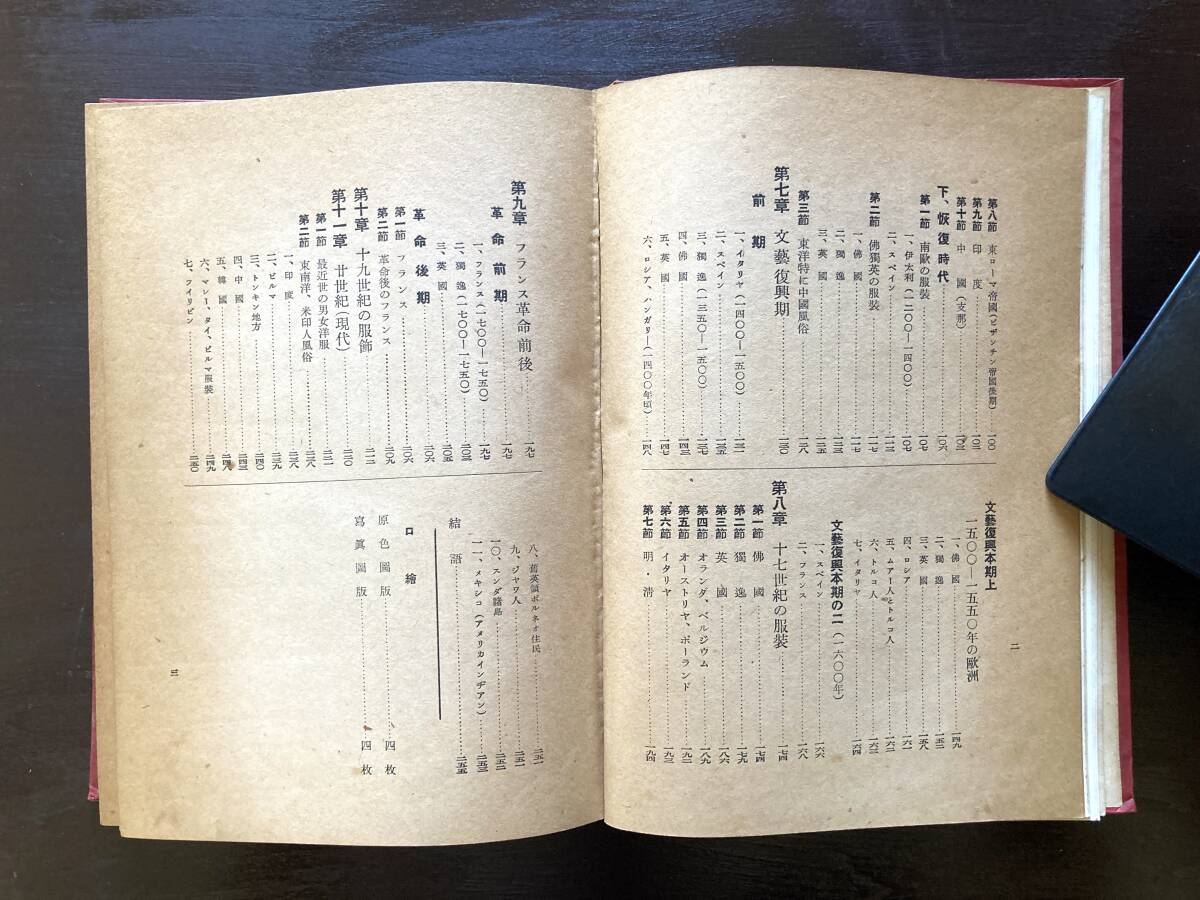 第八節 東ローマ帝國(ビザンチン帝國後期)……一〇〇
第九節 印度……一〇二
第十節 中國(支那)……一〇三
下、恢復時代……一〇六
第一節 南歐の服裝……一〇七
一、伊太利(一二〇〇—一四〇〇)……一〇七
二、スペイン……一一三
第二節 佛獨英の服裝……一一七
一、佛國……一一七
二、獨逸……一二三
三、英國……一二五
第三節 東洋特に中國風俗……一二八
第七章 文藝復興期……一三〇
前期
一、イタリヤ(一四〇〇—一五〇〇)……一三一
二、スペイン……一三五
三、獨逸(一三五〇—一五〇〇)……一三七
四、佛國……一四三
五、英國……一四七
六、ロシア、ハンガリー(一四〇〇年頃)……一四八
文藝復興本期上
一五〇〇—一五五〇年の歐洲
一、佛國……一四九
二、獨逸……一五二
三、英國……一五八
四、ロシア……一六一
五、ムアー人とトルコ人……一六二
六、トルコ人……一六三
七、イタリヤ……一六四
文藝復興本期の二(一六〇〇年)
一、スペイン……一六六
二、フランス……一六八
第八章 十七世紀の服裝……一七四
第一節 佛國……一七四
第二節 獨逸……一七九
第三節 英國……一八六
第四節 オランダ、ベルジウム……一八九
第五節 オーストリヤ、ポーランド……一九二
第六節 イタリヤ……一九三
第七節 明・淸……一九四
二
第九章 フランス革命前後……一九七
革命前期……一九七
一、フランス(一七〇〇—一七五〇)……一九七
二、獨逸(一七〇〇—一七五〇)……二〇三
三、英國……二〇五
革命後期……二〇六
第一節 フランス……二〇六
第二節 革命後のフランス……二〇九
第十章 十九世紀の服飾……二一二
第十一章 廿世紀(現代)……二二〇
第一節 最近世の男女洋服……二二一
第二節 東南洋、米印人風俗……二三八
一、印度……二三八
二、ビルマ……二三九
三、トンキン地方……二四〇
四、中國……二四三
五、韓國……二四八
六、マレー、タイ、ビルマ服裝……二四九
七、フイリピン……二五〇
八、舊英領ボルネオ住民……二五一
九、ジャワ人……二五一
一〇、スンダ諸島……二五二
一一、メキシコ(アメリカインヂアン)……二五三
結語……二五五
口繪
原色圖版……四枚
寫眞圖版……四枚
三